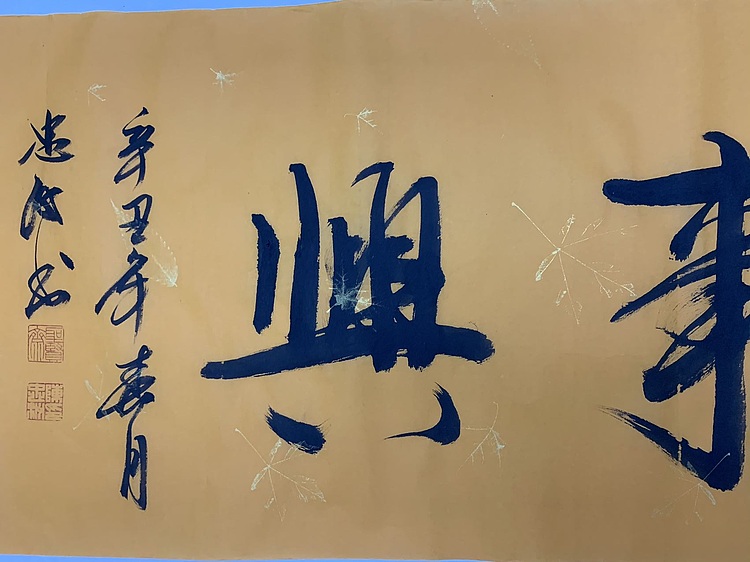 事興
辛丑年春月
忠书